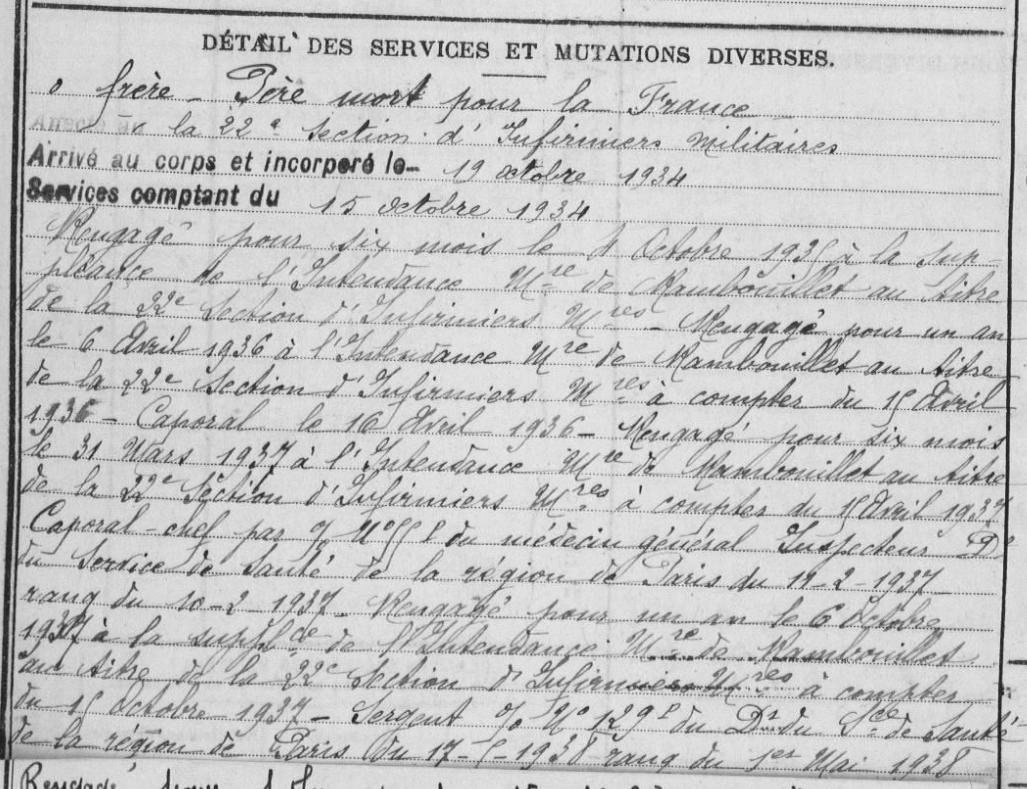 DÉTAIL DES SERVICES ET MUTATIONS DIVERSES.
frère - Père mort pour la France
la 22e Section d'Infirmiers Militaires
Arrivé au corps et incorporé le 19 octobre 1934
Services comptant du 15 octobre 1934
Rengagé pour six mois le 4 Octobre 1935 à la sup-
pléance de l'Intendance Mre de Rambouillet au titre
de la 22e Section d'Infirmiers Mres - Rengagé pour un an
le 6 Avril 1936 à l'Intendance Mre de Rambouillet au titre
de la 22e Section d'Infirmiers Mres à compter du 15 Avril
1936 - Caporal le 16 Avril 1936 - Rengagé pour six mois
le 31 Mars 1937 à l'Intendance Mre de Rambouillet au titre
de la 22e Section d'Infirmiers Mres à compter du 15 Avril 1937
Caporal-chef par du médecin général Inspecteur Dr
du Service de Santé de la région de Paris du 2-1937
rang du 10-2-1937 - Rengagé pour un an le 6 Octobre
1937 à la suppl.ce de l'Intendance Mre de Rambouillet
au titre de la 22e Section d'Infirmiers Mres à compter
du 15 Octobre 1937 - Sergent No 129 du Dr du Sce de Santé
de la région de Paris du 17-5-1938 rang du 1er Mai 1938
Rengagé pour